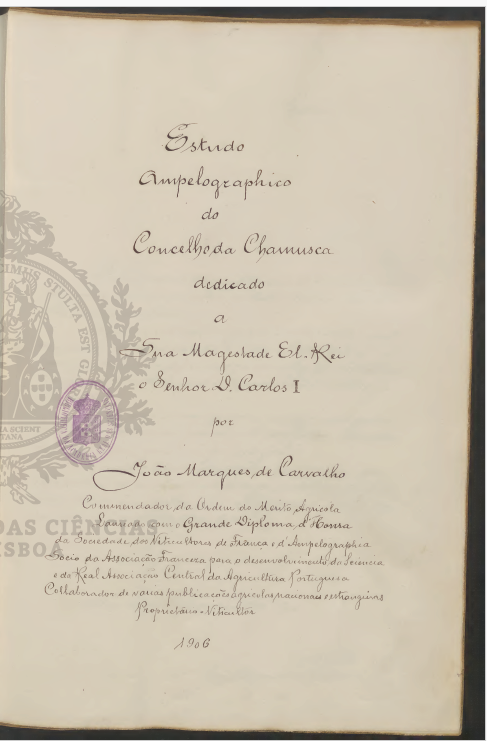 Estudo
Ampelographico
do
Concelho da Chamusca
dedicado
a
Sua Magestade El-Rei
o Senhor D. Carlos I
por
João Marques de Carvalho
Commendador da Ordem do Mérito Agricola
Laureado com o Grande Diploma d'Honra
da Sociedade dos Viticultores de França e d'Ampelographia
Socio da Associação Franceza para o desenvolvimento da Sciencia
e da Real Associação Central da Agricultura Portugueza
Collaborador de varias publicações agricolas, nacionaes e estrangeiras
Proprietario-Viticultor
1906
DAS CIÊNCIAS
ISBOA